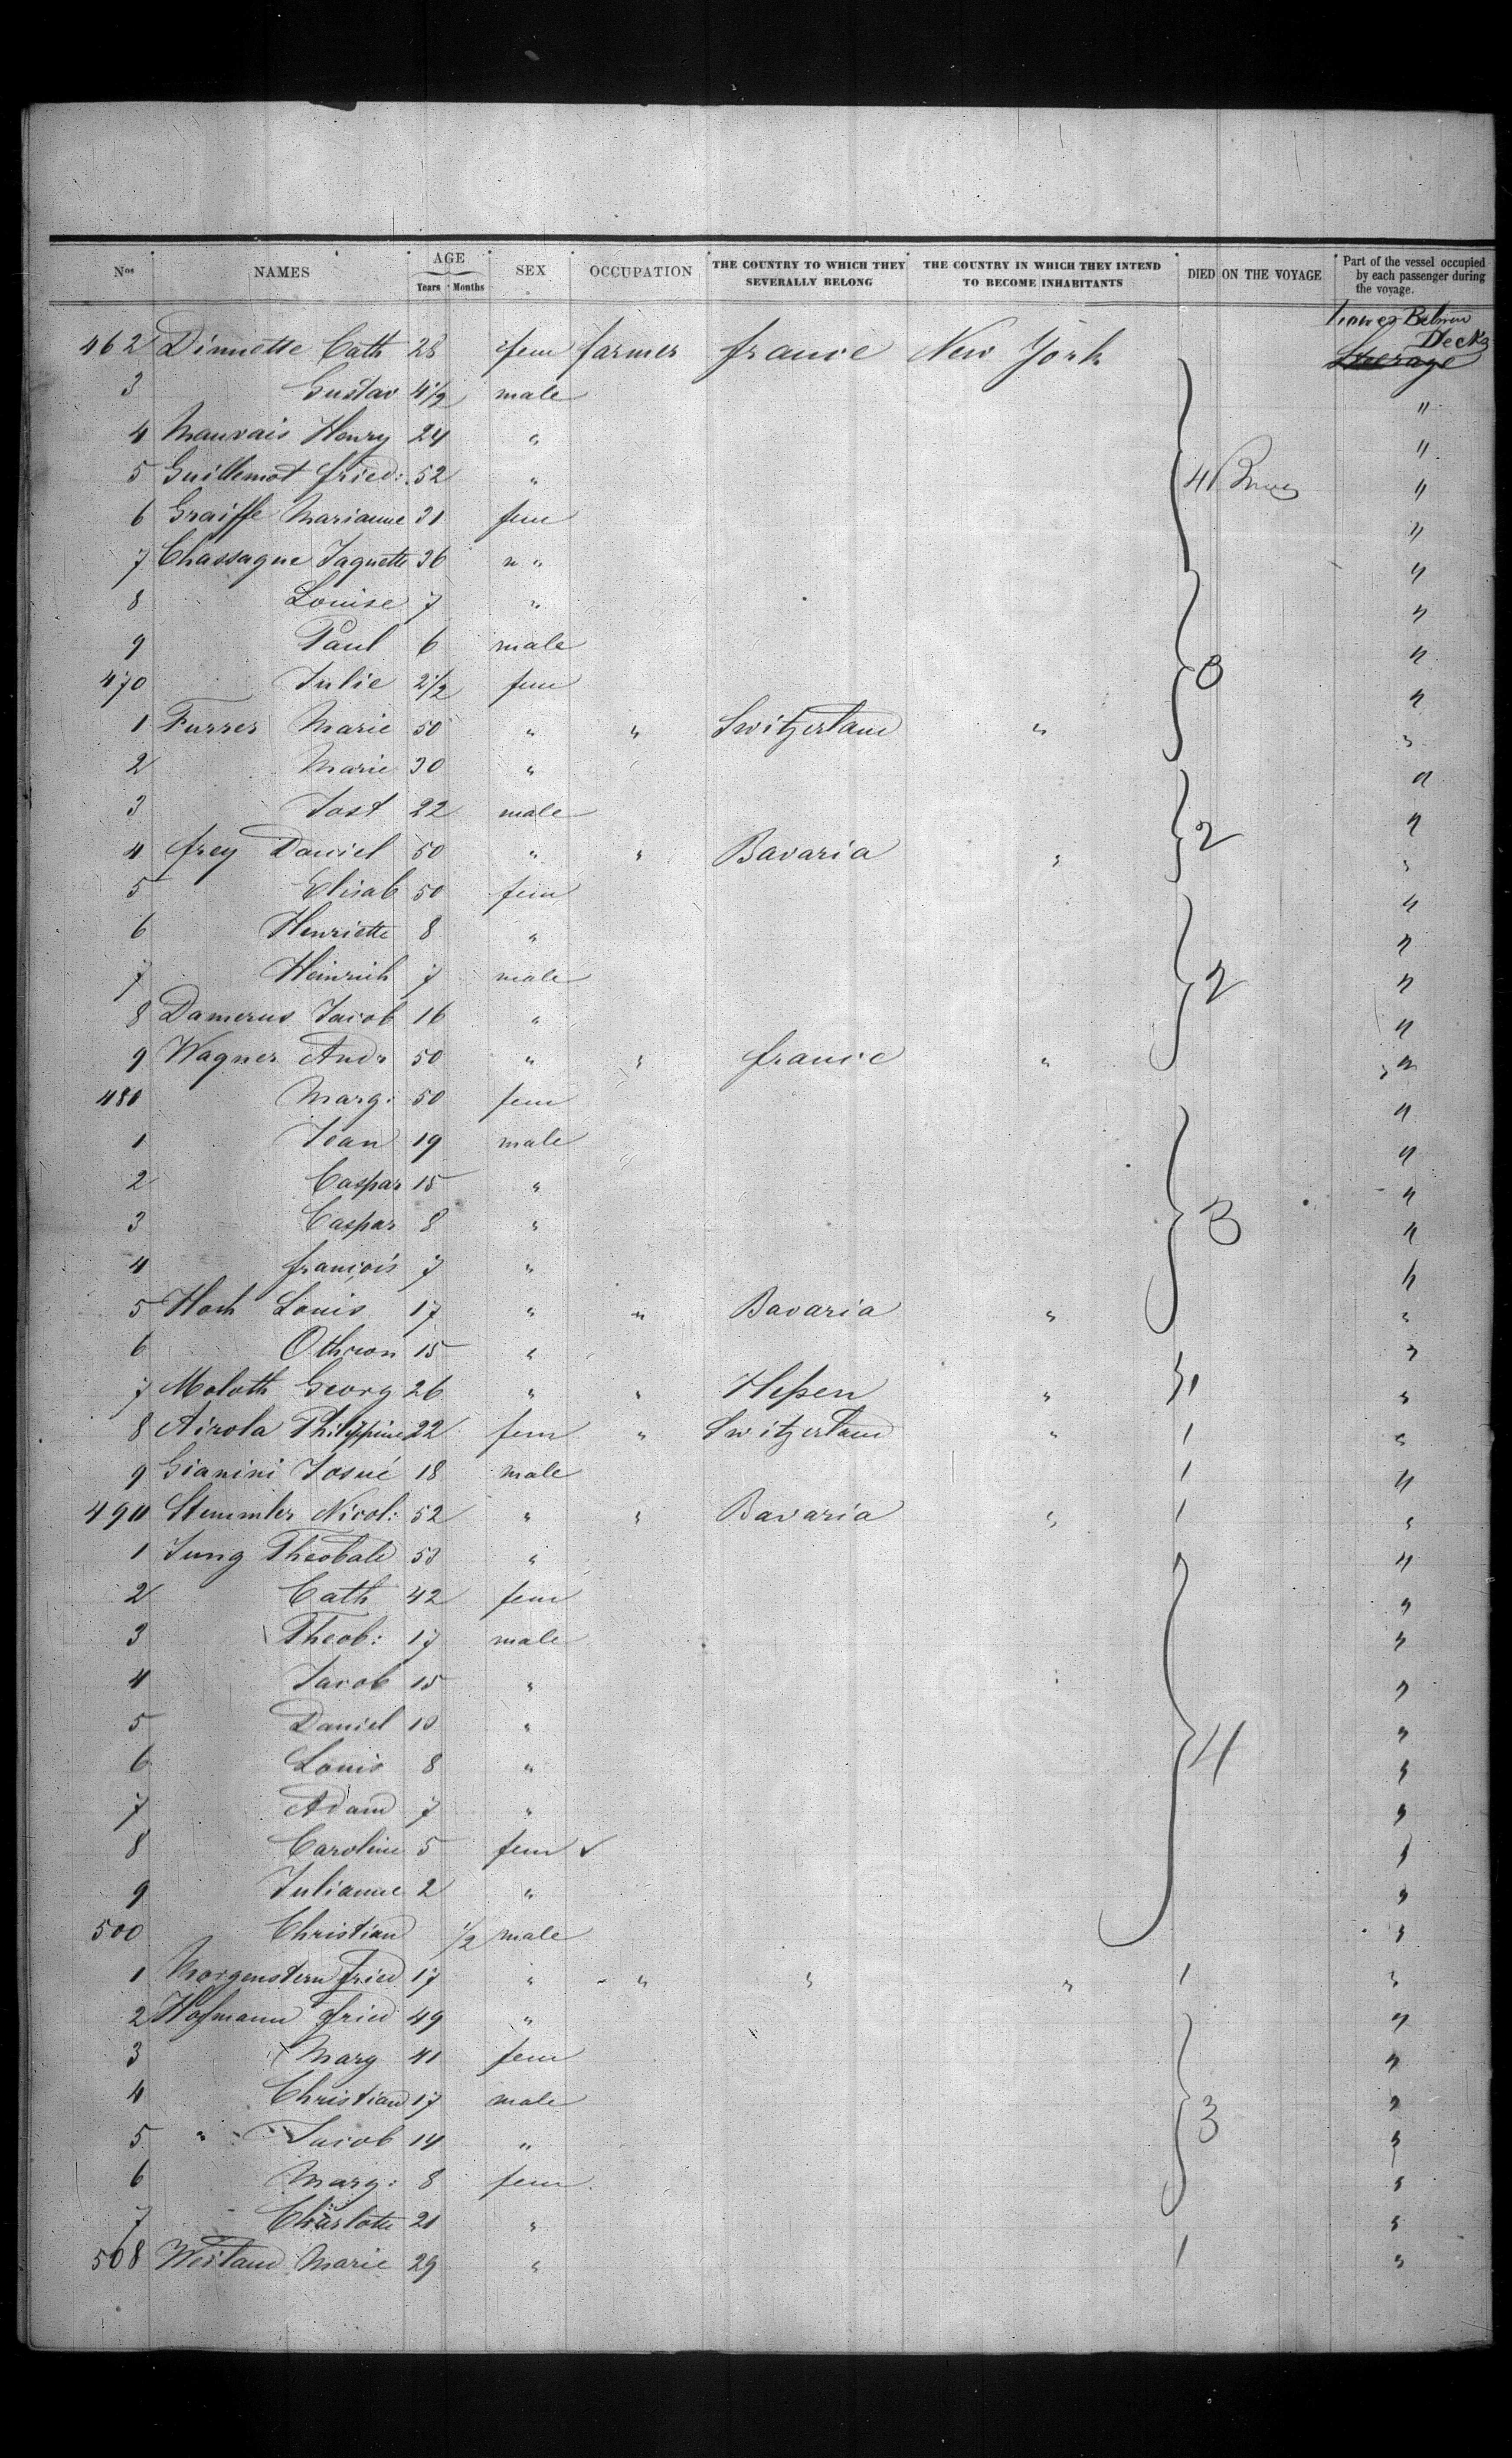 Nos NAMES AGE Years Months SEX OCCUPATION THE COUNTRY TO WHICH THEY SEVERALLY BELONG THE COUNTRY IN WHICH THEY INTEND TO BECOME INHABITANTS DIED ON THE VOYAGE Part of the vessel occupied by each passenger during the voyage.
Lower Between Decks
462 Dinnette Cath 28 fem farmer france New York Steerage
3 Gustav 4 1/2 male "
4 Mauvais Henry 24 " "
5 Guillemot fried: 52 " 4 "
6 Graiffe Marianne 31 fem "
7 Chassagne Jaquette 36 " "
8 Louise 7 " "
9 Paul 6 male "
470 Julie 2 1/2 fem 3 "
1 Furrer Marie 50 " " Switzerland " "
2 Marie 30 " "
3 Jost 22 male "
4 frey Daniel 50 " " Bavaria " 2 "
5 Elisab 50 fem "
6 Henriette 8 " "
7 Heinrich 7 male 2 "
8 Damerus Jacob 16 " "
9 Wagner Andr 50 " " france " "
480 Marg: 50 fem "
1 Jean 19 male "
2 Caspar 15 " "
3 Caspar 8 " 3 "
4 françois 7 " "
5 Hoch Louis 17 " " Bavaria " "
6 15 " "
7 Moloth Georg 26 " " Hessen " 1 "
8 Airola Philippine 22 fem " Switzerland " 1 "
9 Gianini Josué 18 male 1 "
490 Stemmler Nicol: 52 " " Bavaria " 1 "
1 Jung Theobald 53 " "
2 Cath 42 fem "
3 Theob: 17 male "
4 Jacob 15 " "
5 Daniel 10 " 4 "
6 Louis 8 " "
7 Adam 7 " "
8 Caroline 5 fem "
9 Julianne 2 " "
500 Christian 1/2 male "
1 Morgenstern fried 17 " " " " 1 "
2 Hofmann fried 49 " "
3 Marg 41 fem "
4 Christian 17 male "
5 " Jacob 14 " 3 "
6 Marg: 8 fem "
7 Charlotte 21 " "
508 Weiland Marie 29 " 1 "